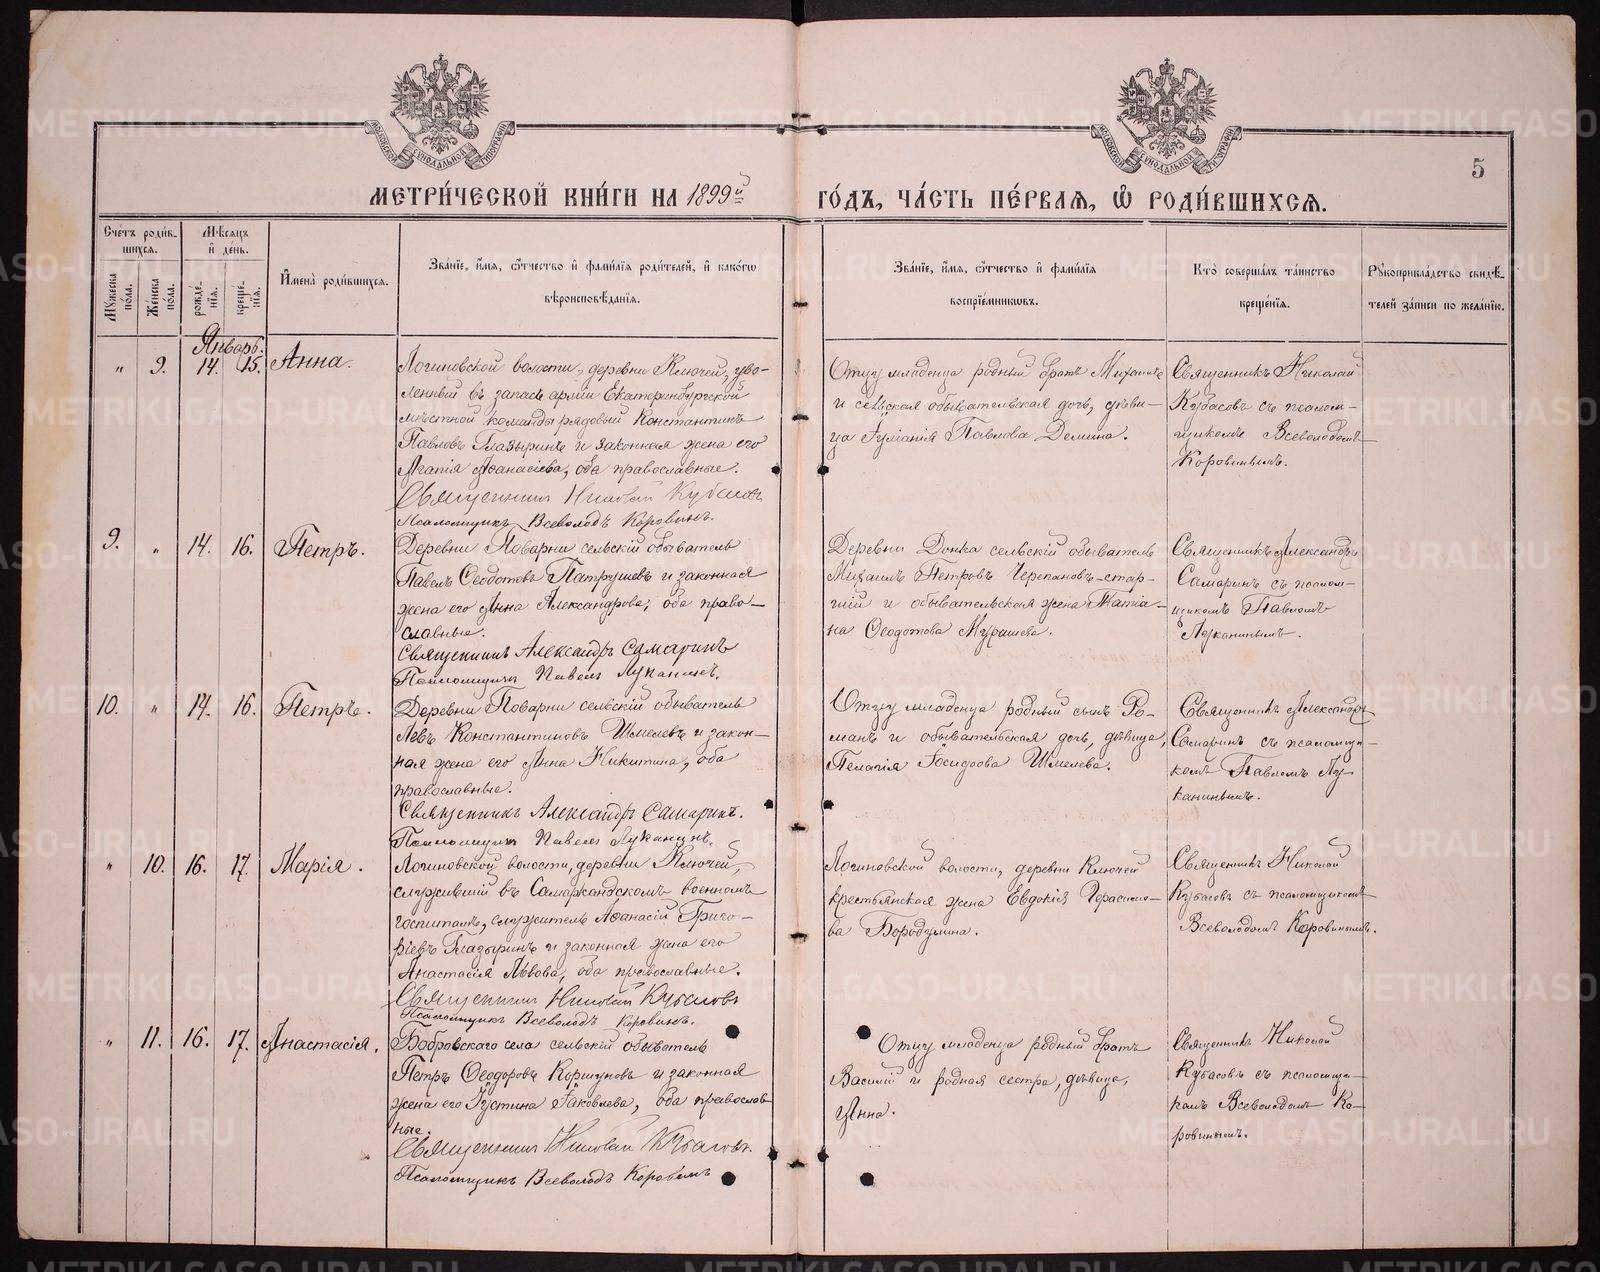 МОСКОВСКОЙ СѴНОДАЛЬНОЙ ТИПОГРАФІИ
МОСКОВСКОЙ СѴНОДАЛЬНОЙ ТИПОГРАФІИ
5
МЕТРИ́ЧЕСКОЙ КНИ́ГИ НА 1899й ГО́ДЪ, ЧА́СТЬ ПЕ́РВАѦ, Ѡ҆ РОДИ́ВШИХСѦ.
Сче́тъ роди́в-
шихсѧ.
Мѣ́сѧцъ
и҆ де́нь.
Мꙋ́жеска
по́ла.
Же́нска
по́ла.
рожде́-
нїѧ.
креще́-
нїѧ.
И҆мена̀ роди́вшихсѧ.
Зва́нїе, и҆́мѧ, ѻ҆́тчество и҆ фами́лїѧ роди́телей, и҆ како́гѡ
вѣроисповѣ́данїѧ.
Зва́нїе, и҆́мѧ, ѻ҆́тчество и҆ фами́лїѧ
воспрїе́мникѡвъ.
Кто̀ соверша́лъ та́инство
креще́нїѧ.
Рꙋкоприкла́дство свидѣ́-
телей за́писи по жела́нїю.
Январь.
" 9. 14. 15. Анна.
Логиновской волости, деревни Ключей, уво-
ленный въ запасъ арміи Екатеринбургской
мѣстной команды рядовый Константинъ
Павловъ Глазыринъ и законная жена его
Агапія Аѳанасіева, оба православные.
Священникъ Николай Кубасовъ
Псаломщикъ Всеволодъ Коровинъ.
Отцу младенца родный братъ Михаилъ
и сельская обывательская дочь, дѣви-
ца Іуліанія Павлова Демина.
Священникъ Николай
Кубасовъ съ псалом-
щикомъ Всеволодомъ
Коровинымъ.
9. " 14. 16. Петръ.
Деревни Поварни сельскій обыватель
Павелъ Ѳеодотовъ Патрушевъ и законная
жена его Анна Александрова, оба право-
славные.
Священникъ Александръ Самаринъ
Псаломщикъ Павелъ Луканинъ.
Деревни Донка сельскій обыватель
Михаилъ Петровъ Черепановъ-стар-
шій и обывательская жена Татіа-
на Ѳеодотова Мурашева.
Священникъ Александръ
Самаринъ съ псалом-
щикомъ Павломъ
Луканинымъ.
10. " 14. 16. Петръ.
Деревни Поварни сельскій обыватель
Левъ Константиновъ Шмелевъ и закон-
ная жена его Анна Никитина, оба
православные.
Священникъ Александръ Самаринъ.
Псаломщикъ Павелъ Луканинъ.
Отцу младенца родный сынъ Ро-
манъ и обывательская дочь, дѣвица,
Пелагія Іосифова Шмелева.
Священникъ Александръ
Самаринъ съ псаломщи-
комъ Павломъ Лу-
канинымъ.
" 10. 16. 17. Марія.
Логиновской волости, деревни Ключей,
служившій въ Самаркандскомъ военномъ
госпиталѣ, служитель Аѳанасій Григо-
ріевъ Глазыринъ и законная жена его
Анастасія Львова, оба православные.
Священникъ Николай Кубасовъ
Псаломщикъ Всеволодъ Коровинъ.
Логиновской волости, деревни Ключей
крестьянская жена Евдокія Герасимо-
ва Бородулина.
Священникъ Николай
Кубасовъ съ псаломщикомъ
Всеволодомъ Коровинымъ.
" 11. 16. 17. Анастасія.
Бобровскаго села сельскій обыватель
Петръ Ѳеодоровъ Коршуновъ и законная
жена его Іустина Іаковлева, оба православ-
ные.
Священникъ Николай Кубасовъ.
Псаломщикъ Всеволодъ Коровинъ
Отцу младенца родный братъ
Василій и родная сестра, дѣвица,
Анна.
Священникъ Николай
Кубасовъ съ псаломщи-
комъ Всеволодомъ Ко-
ровинымъ.
METRIKI.GASO-URAL.RU